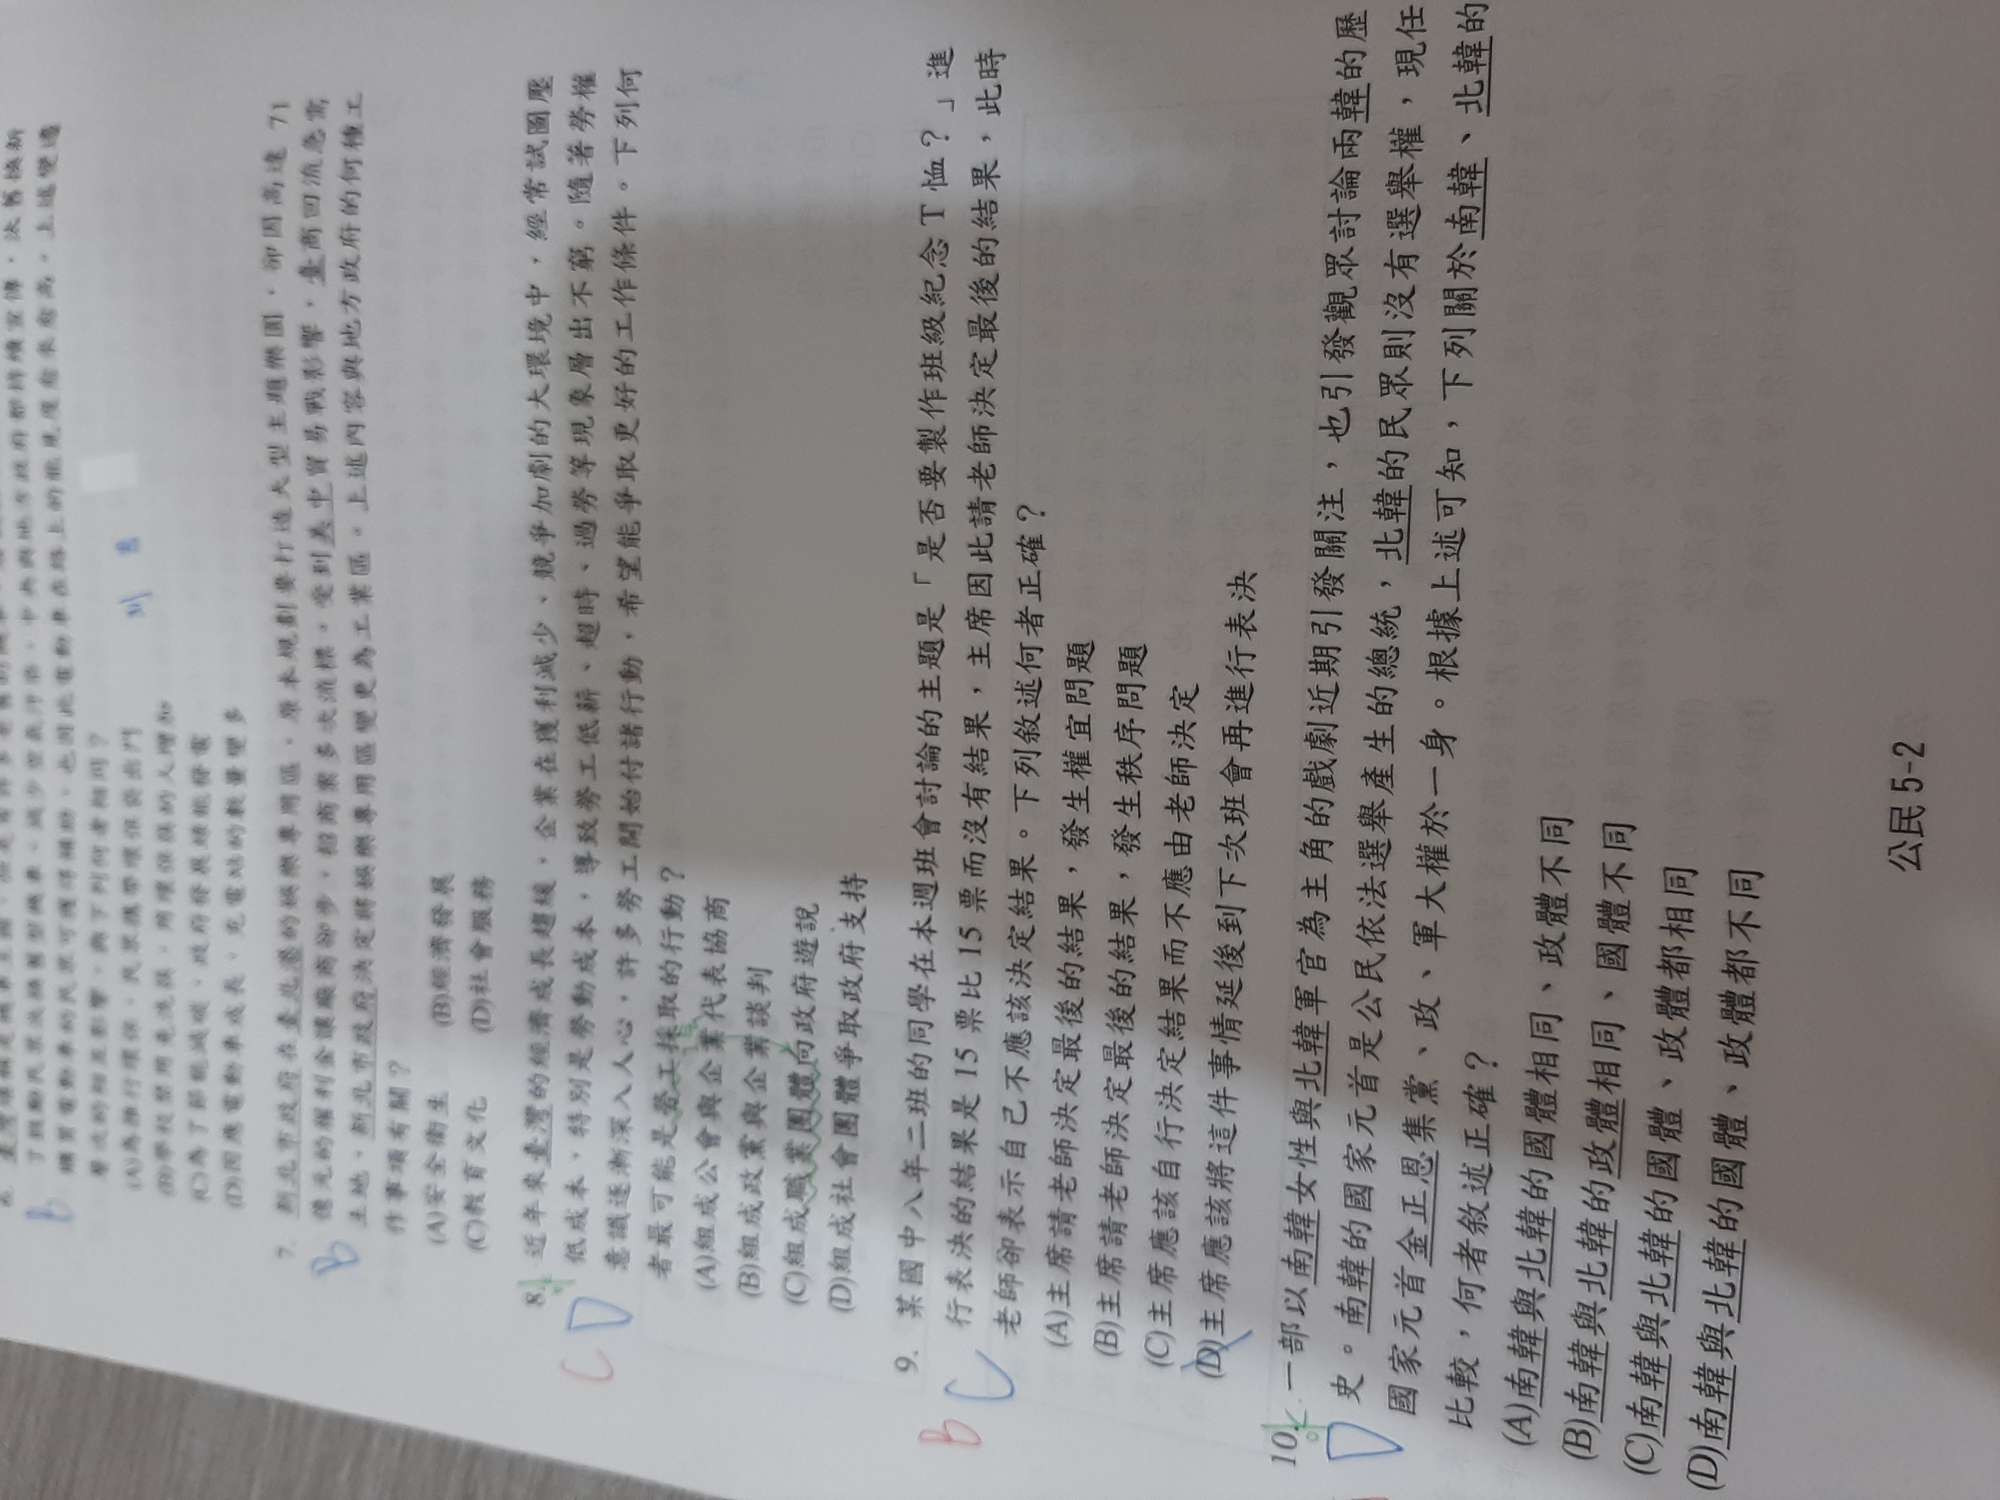 B
響造成的相互影響，與下列何者相同？
(A)為推行環保，民眾攜帶環保袋出門
(C)為了節能減碳，政府發展綠能發電
(D)因應電動車成長，充電站的數量變多
7. 新北市政府在臺北港的娛樂專用區，原本規劃要打造大型主題樂園，卻因高達 71
B
億元的權利金讓廠商卻步，招商案多次流標。受到美中貿易戰影響，臺商回流急需
土地，新北市政府決定將娛樂專用區變更為工業區。上述內容與地方政府的何種工
作事項有關？
(A)安全衛生 (B)經濟發展
(C)教育文化 (D)社會服務
8. 近年來臺灣的經濟成長趨緩，企業在獲利減少、競爭加劇的大環境中，經常試圖壓
C D
低成本，特別是勞動成本，導致勞工低薪、超時、過勞等現象層出不窮。隨著勞權
意識逐漸深入人心，許多勞工開始付諸行動，希望能爭取更好的工作條件。下列何
者最可能是勞工採取的行動？
(A)組成公會與企業代表協商
(B)組成政黨與企業談判
(C)組成職業團體向政府遊說
(D)組成社會團體爭取政府支持
9. 某國中八年二班的同學在本週班會討論的主題是「是否要製作班級紀念T恤？」進
B C
行表決的結果是 15 票比 15 票而沒有結果，主席因此請老師決定最後的結果，此時
老師卻表示自己不應該決定結果。下列敘述何者正確？
(A)主席請老師決定最後的結果，發生權宜問題
(B)主席請老師決定最後的結果，發生秩序問題
(C)主席應該自行決定結果而不應由老師決定
(D)主席應該將這件事情延後到下次班會再進行表決
10. 一部以南韓女性與北韓軍官為主角的戲劇近期引發關注，也引發觀眾討論兩韓的歷
D
史。南韓的國家元首是公民依法選舉產生的總統，北韓的民眾則沒有選舉權，現任
國家元首金正恩集黨、政、軍大權於一身。根據上述可知，下列關於南韓、北韓的
比較，何者敘述正確？
(A)南韓與北韓的國體相同、政體不同
(B)南韓與北韓的政體相同、國體不同
(C)南韓與北韓的國體、政體都相同
(D)南韓與北韓的國體、政體都不同
公民 5-2